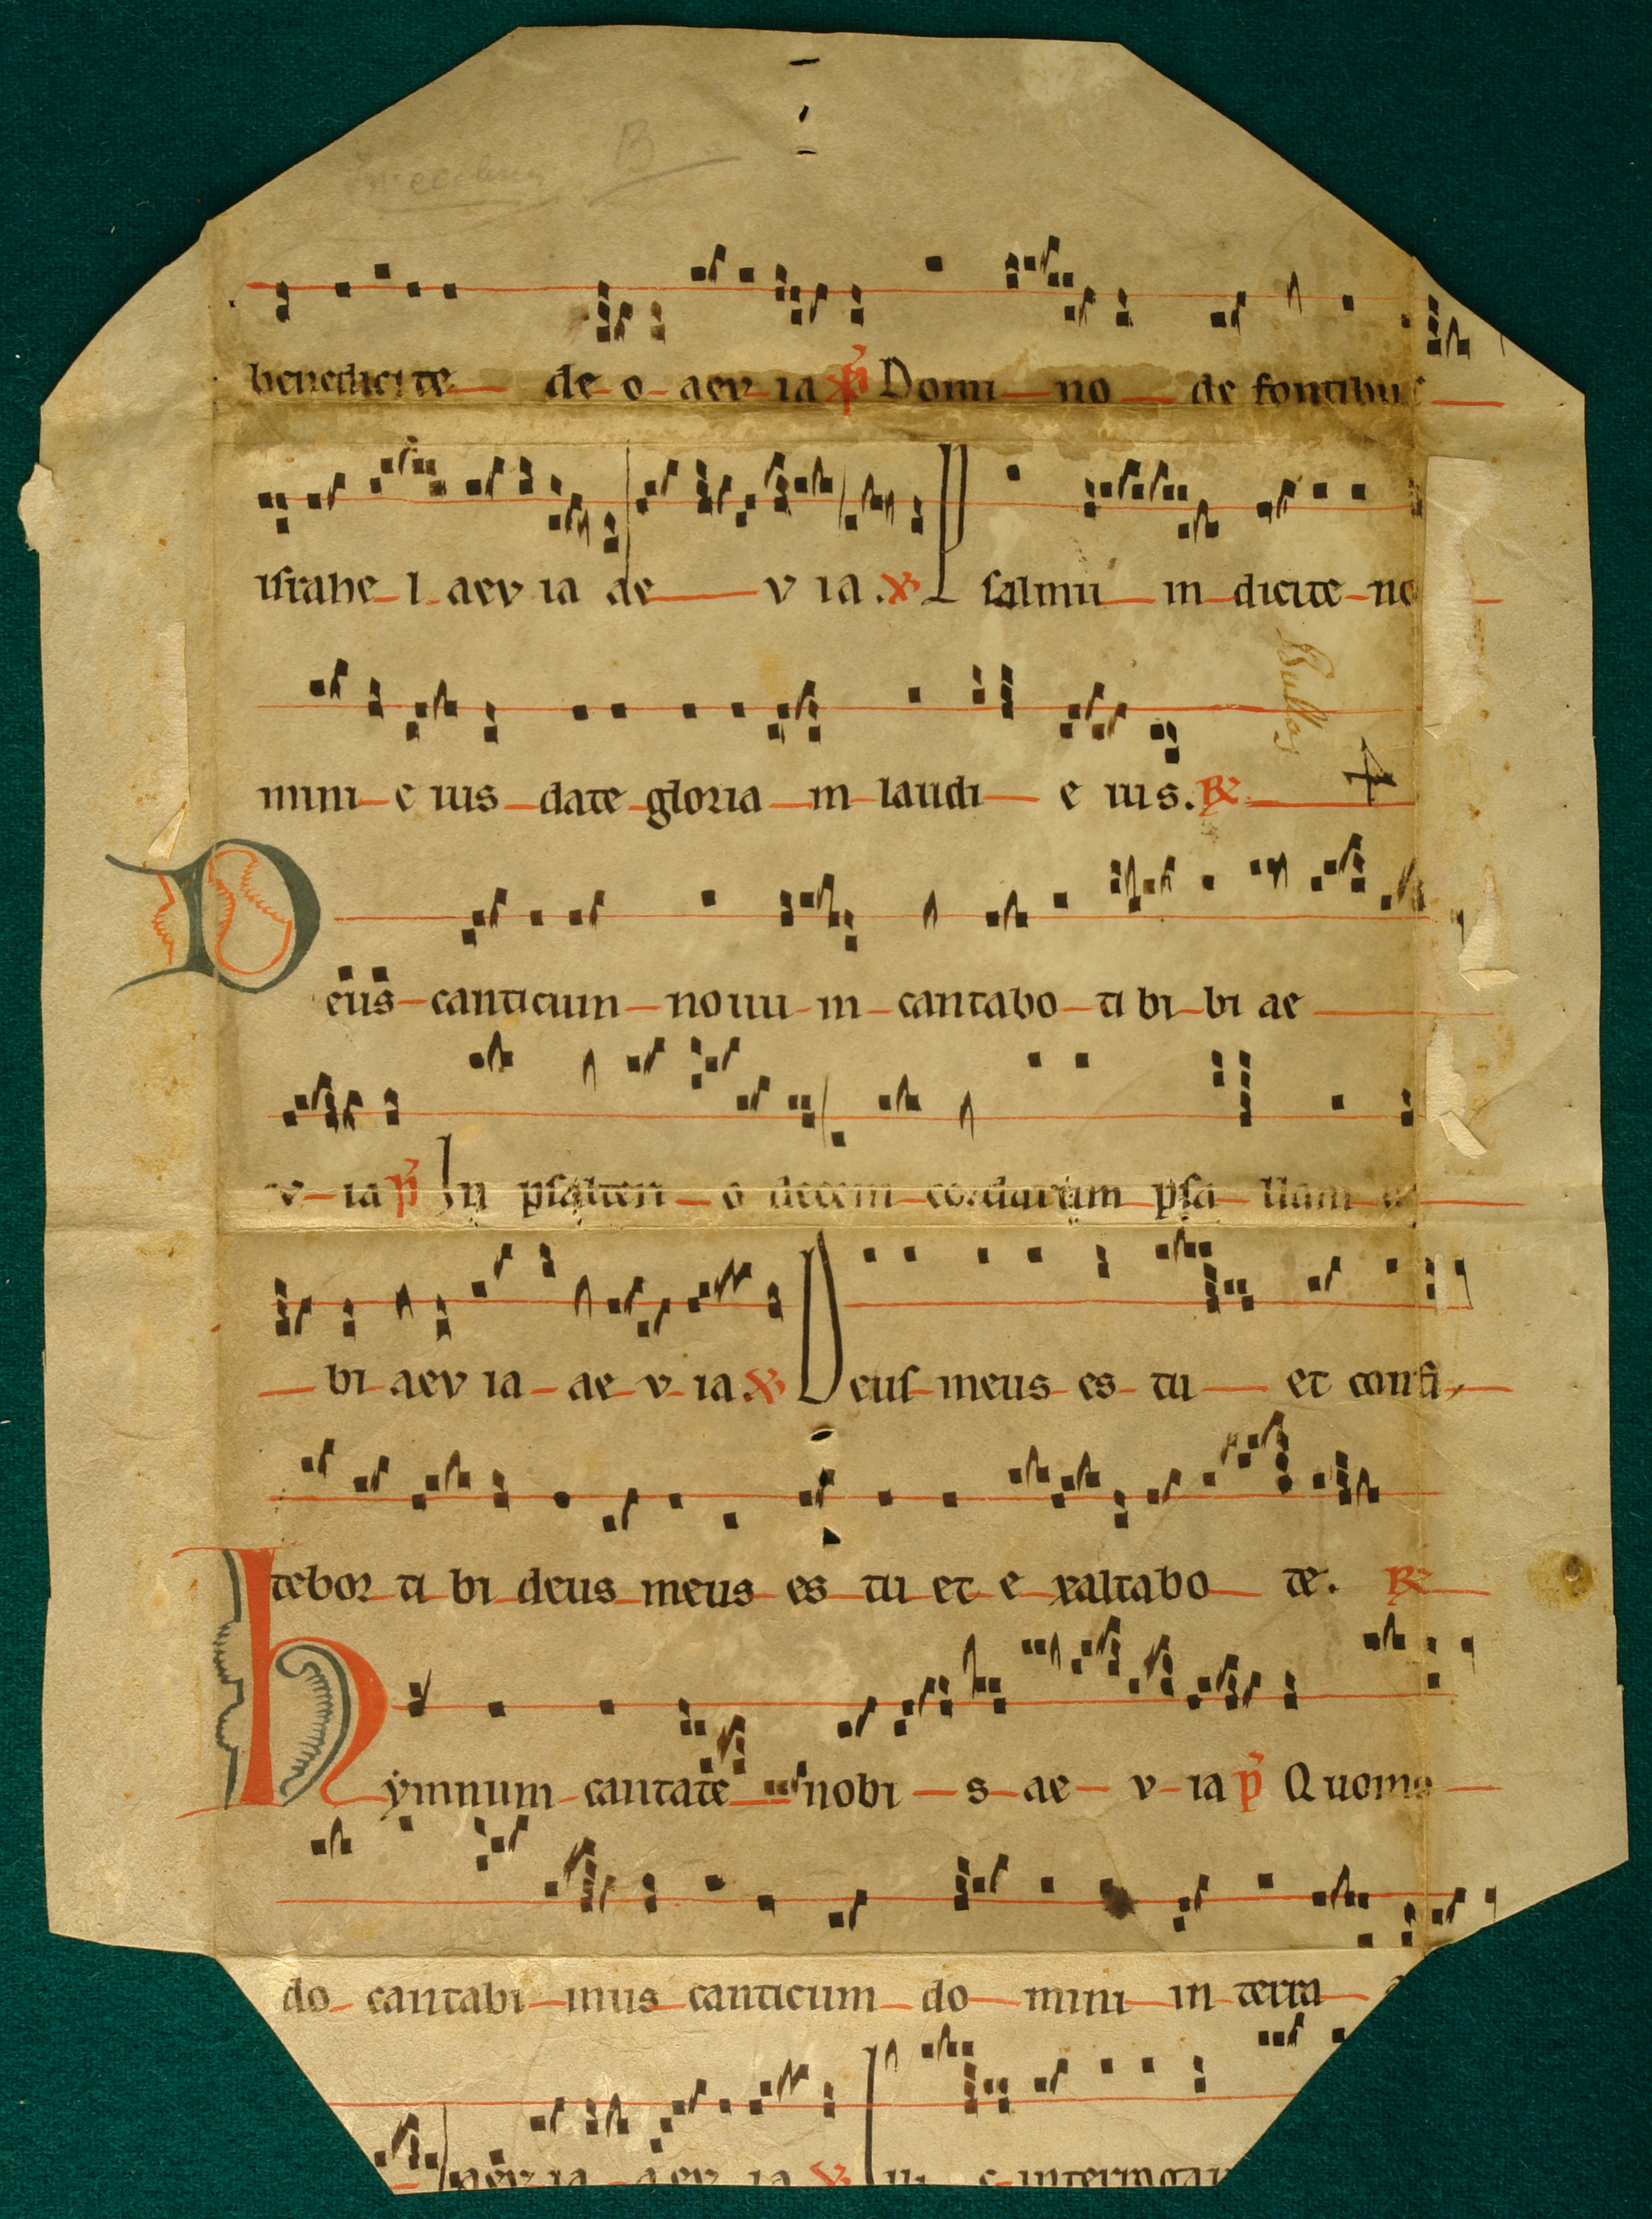 B
benedicite de o aev ia p̃ Domi no de fontibus
israhe l aev ia ae v ia. ℣ Psalmū in dicite no
mini e ius date gloria in laudi e ius. ℟
Bullas
4
Deus canticum nouū in cantabo ti bi bi ae
v ia p̃ In psalteri o decem cordarum psa llam
bi aev ia ae v ia. ℣ Deus meus es tu et confi,
tebor ti bi deus meus es tu et e xaltabo te. ℟
hẏmnum cantate nobi s ae v ia p̃ Quomo
do cantabi mus canticum do mini in terra
aev ia aev ia ℣ Illi c interrogau